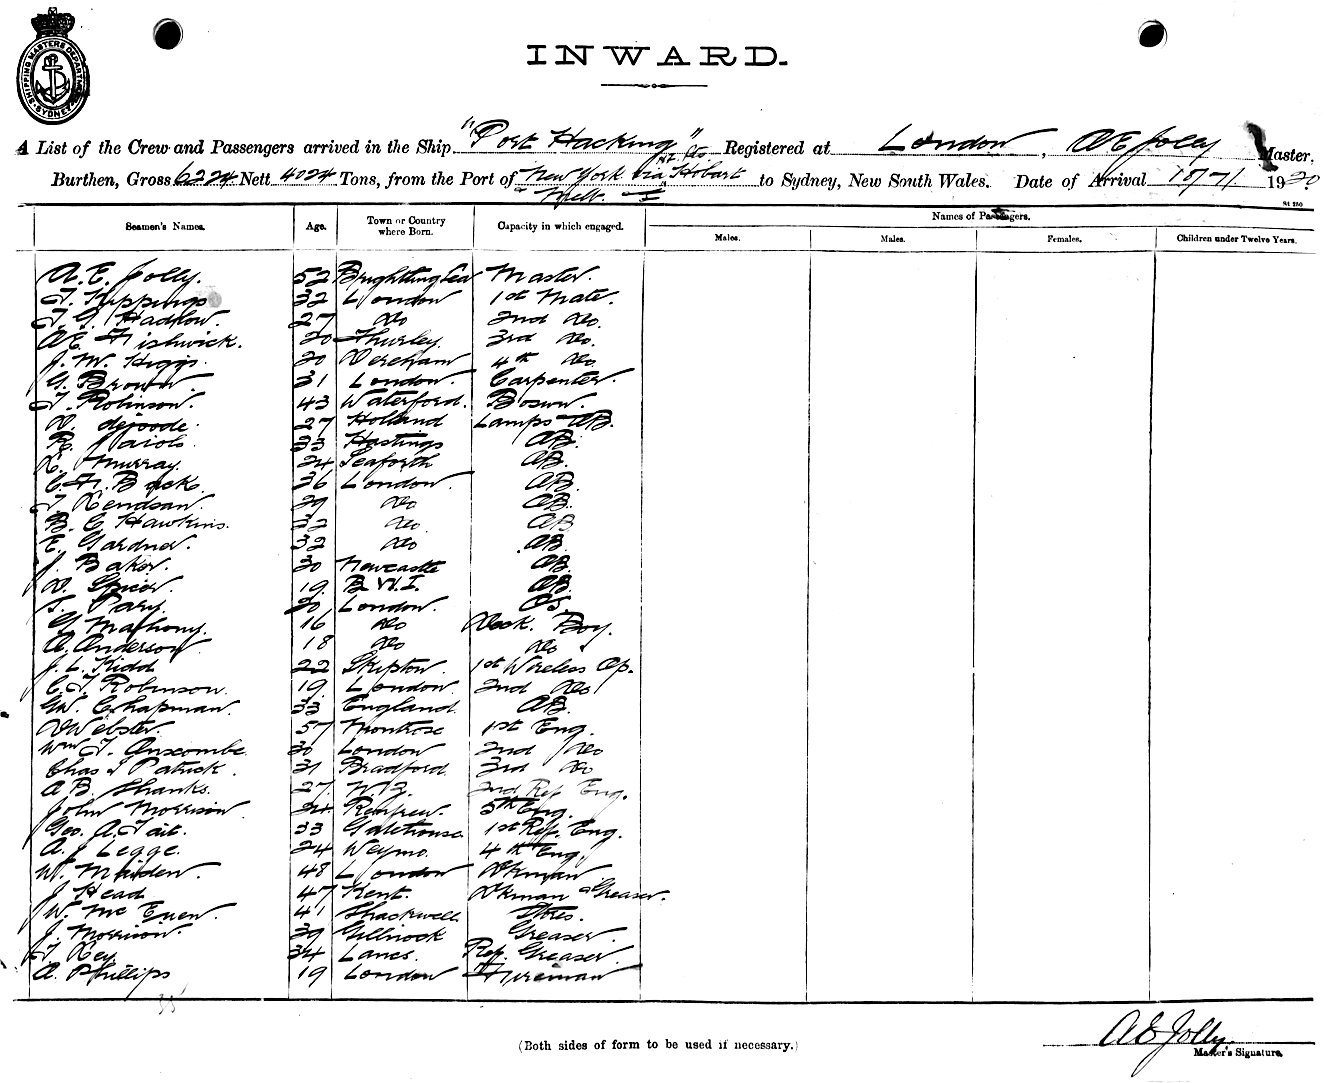 SHIPPING MASTERS DEPARTMENT SYDNEY
INWARD.
A List of the Crew and Passengers arrived in the Ship "Port Hacking" Registered at London, A E Jolly Master,
Burthen, Gross 6224 Nett 4024 Tons, from the Port of New York via Hobart to Sydney, New South Wales. Date of Arrival 1920
& Melb.
Seamen's Names. Age. Town or Country where Born. Capacity in which engaged. Names of Passengers.
Males. Males. Females. Children under Twelve Years.
A. E. Jolly. 52 Master.
T. Kippings 32 London 1st Mate.
T. G. Hadlow. 27 do 2nd do.
A E Fishwick. 20 Thurley. 3rd do.
J. W. Higgs. 20 Dereham 4th do
G. Brown 31 London. Carpenter.
T. Robinson. 43 Waterford. Bosun.
27 Holland Lamps AB.
R. 33 Hastings AB.
Murray. 24 Seaforth AB.
C. H. Back 36 London AB.
29 do AB.
B. C Hawkins. 32 do. AB
E. Gardner. 32 do AB.
J. Baker. 30 Newcastle AB
D. Spicer. 19 B.W.I. AB
S. 20 London. OS.
G. 16 do Deck Boy.
A. Anderson 18 do do
J. L. Kidd 22 Skipton. 1st Wireless Op.
C. T. Robinson. 19 London. 2nd do
GW. Chapman. 33 England. AB.
D Webster. 57 Montrose 1st Eng.
Wm T. Anscombe. 30 London 2nd do
Chas Patrick. 31 Bradford. 3rd do
A B. Shanks. 27 N.Z. 2nd Ref. Eng.
John Morrison 24 Renfrew. 5th Eng.
Geo. A. Tait. 33 Gatehouse 1st Ref. Eng.
A. J Legge. 24 Weymo. 4th Eng.
W. Maiden. 48 London Dkman
J. Head 47 Kent. Dkman & Greaser.
W. Mc Euen. 41 Shackwell Stores.
J. Morrison. 39 Greaser.
T. Key 34 Lancs. Ref. Greaser.
A. Phillips 19 London Fireman
35
(Both sides of form to be used if necessary.)
A E Jolly
Master's Signature.